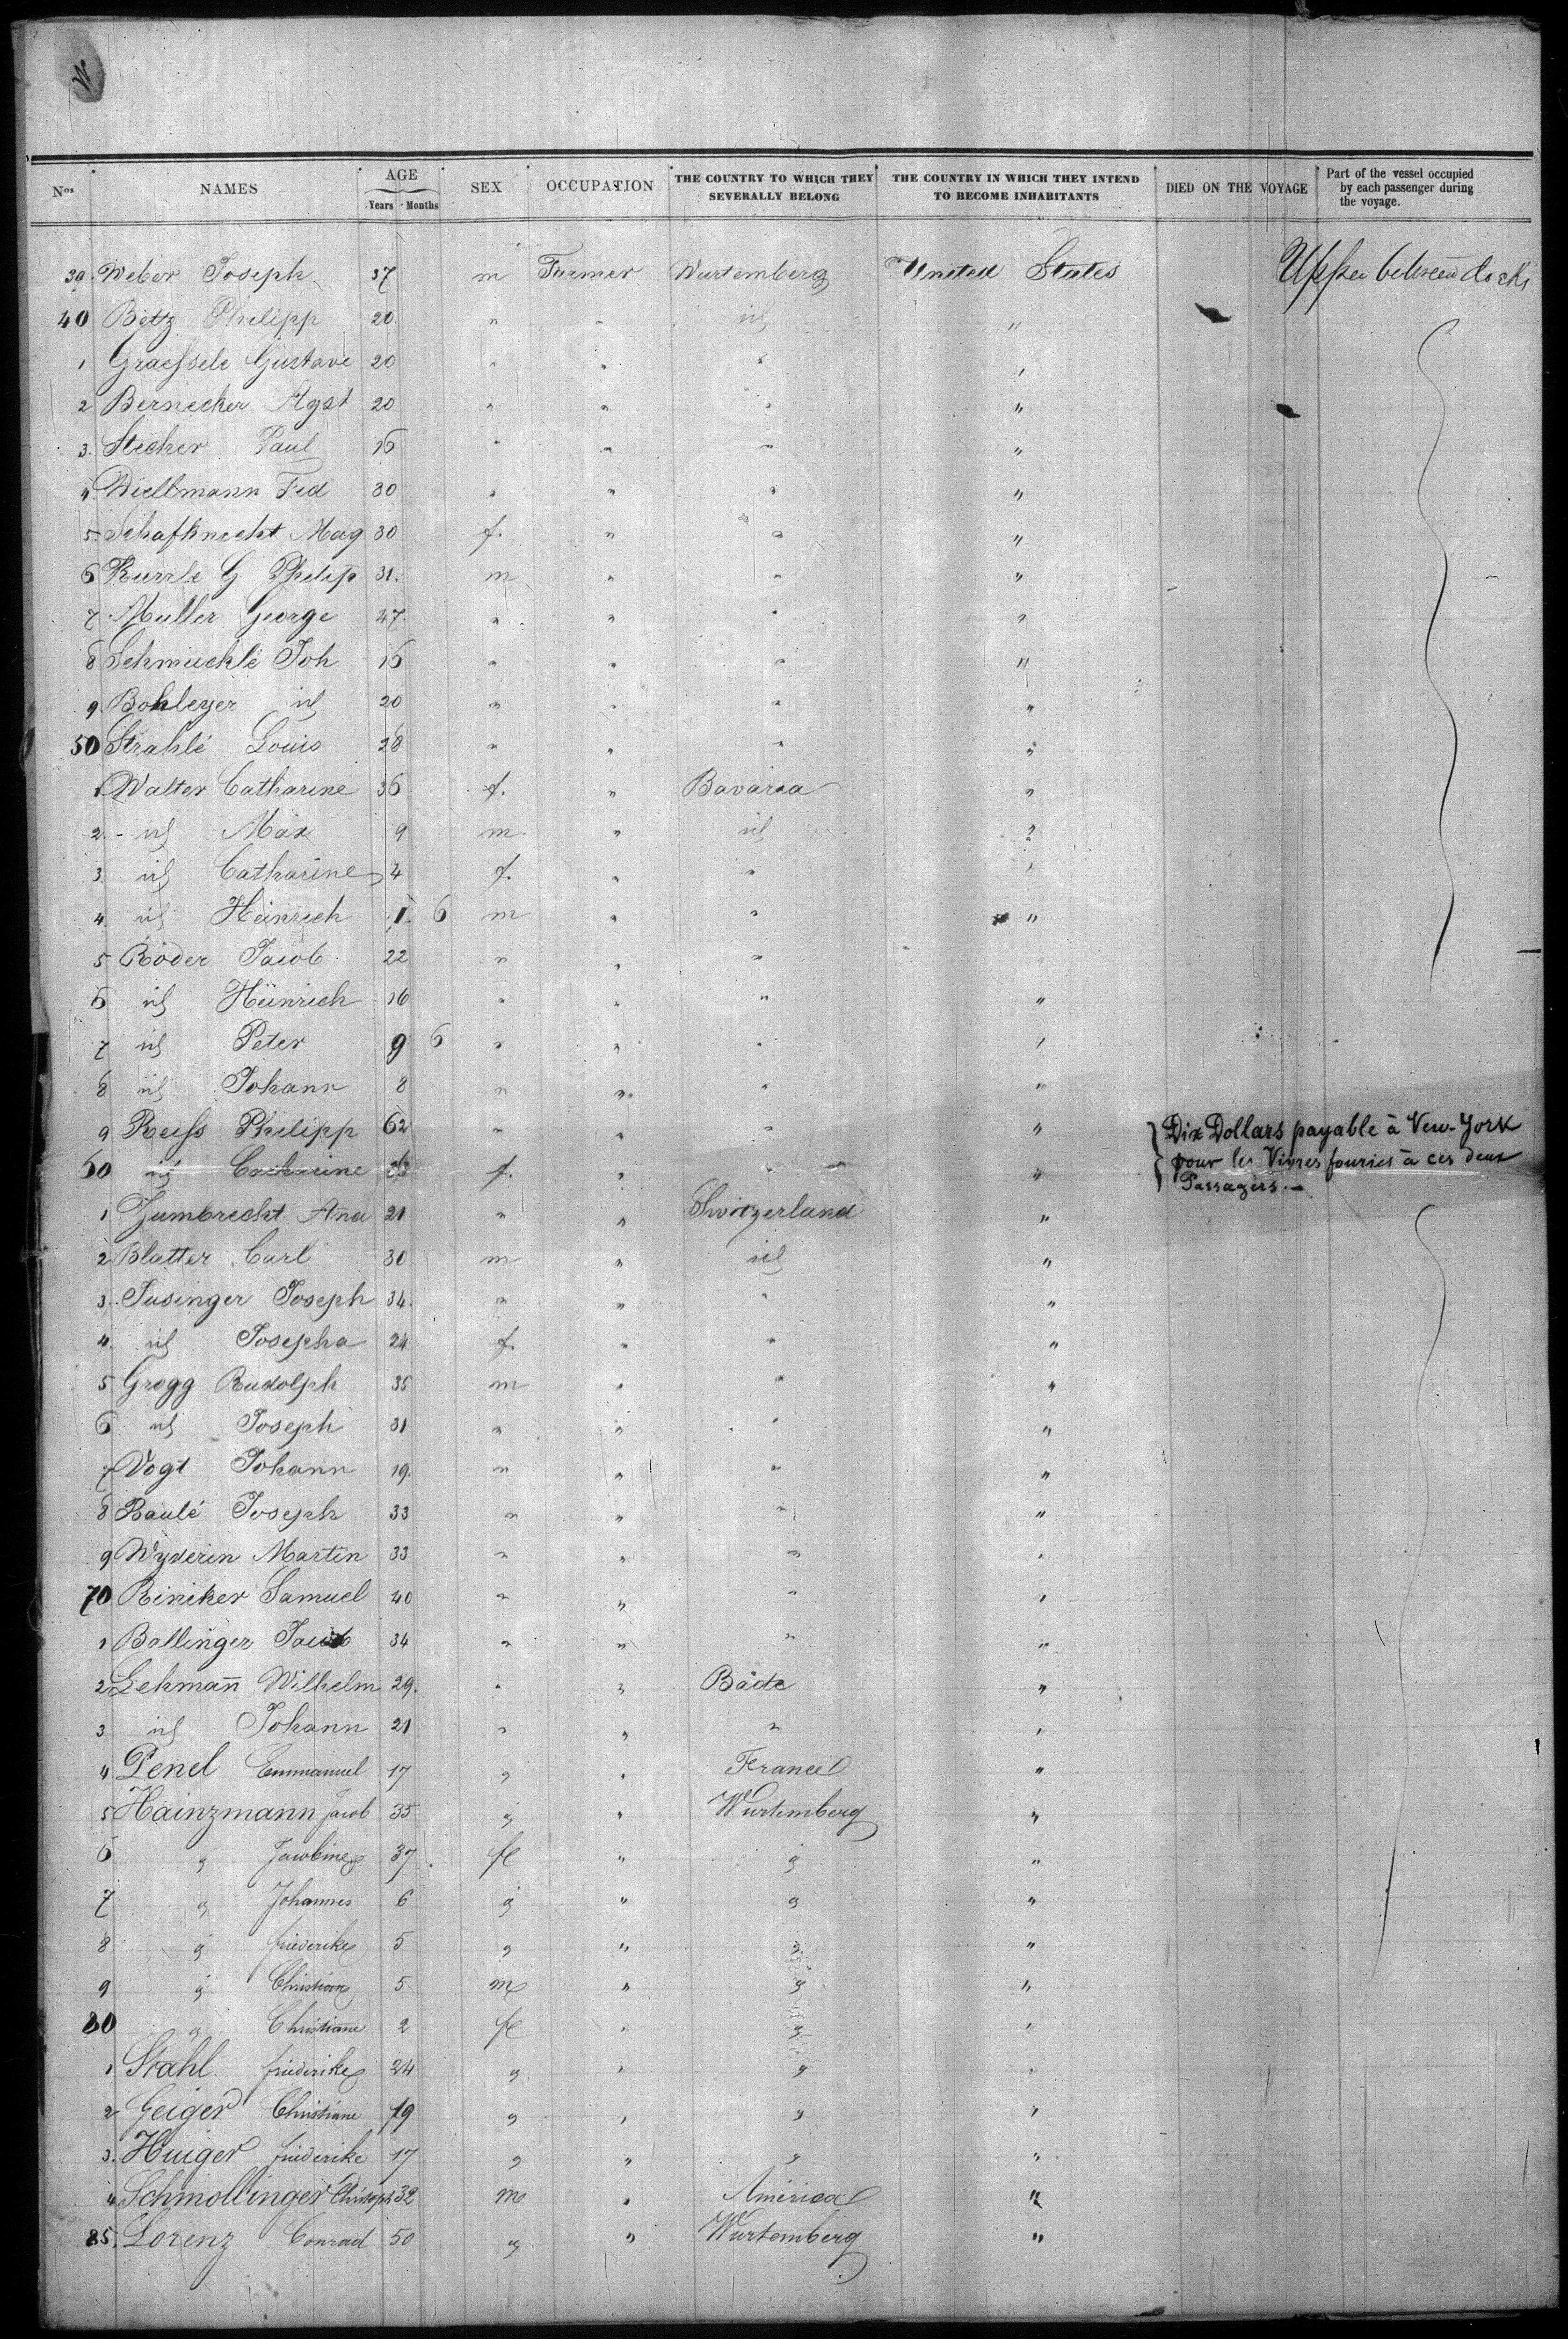 W
Nos NAMES AGE Years Months SEX OCCUPATION THE COUNTRY TO WHICH THEY SEVERALLY BELONG THE COUNTRY IN WHICH THEY INTEND TO BECOME INHABITANTS DIED ON THE VOYAGE Part of the vessel occupied by each passenger during the voyage.
39. Weber Joseph 37 m Farmer Wurtemberg United States Upper between decks
40 Betz Philipp 20 " " id "
1 Graessele Gustave 20 " " " "
2 Bernecker Agst 20 " " " "
3. Sticher Paul 16 " " " "
4. Diellmann Fed 30 " " " "
5. Schafknecht Mag 30 f. " " "
6 Kurrle G Philip 31. m " " "
7 Muller George 47. " " " "
8 Schmucklé Joh 16 " " " "
9. Bohleyer id 20 " " " "
50 Strahlé Louis 28 " " " "
1 Walter Catharine 36 f. " Bavaria "
2. id Max 9 m " id "
3. id Catharine 4 f. " " "
4. id Heinrich 1. 6 m " " "
5 Röder Jacob 22 " " "
6 id Heinrich 16 " " " "
7 id Peter 9 6 " " " "
8 id Johann 8 " " " "
9 Reiss Philipp 62 " " " " Dix Dollars payable à New-York
60 id Catharine f. " " " pour les Vivres fournies à ces deux
Passagers.
1 Zumbrecht Ana 21 " " Switzerland "
2 Blatter Carl 30 m " id "
3. Susinger Joseph 34. " " " "
4. id Josepha 24 f. " " "
5 Grogg Rudolph 35 m " " "
6 id Joseph 31 " " " "
7 Vogt Johann 19. " " " "
8 Baulé Joseph 33 " " " "
9 Wyderin Martin 33 " " " "
70 Riniker Samuel 40 " " " "
1 Bollinger Jacob 34 " " " "
2 Lehmañn Wilhelm 29. " " Bade "
3 id Johann 21 " " " "
4 Penel Emmanuel 17 " " France "
5 Hainzmann Jacob 35 " " Wurtemberg "
6 " Jacobine 37 fe " " "
7 " Johannes 6 " " " "
8 " friederike 5 " " " "
9 " Christian 5 m " " "
80 " Christiane 2 fe " " "
1 Stahl friederike 24 " " " "
2 Geiger Christiane 19 " " " "
3. Huiger friederike 17 " " " "
4 Schmollinger Christoph 32 m " America "
85. Lorenz Conrad 50 " " Wurtemberg "